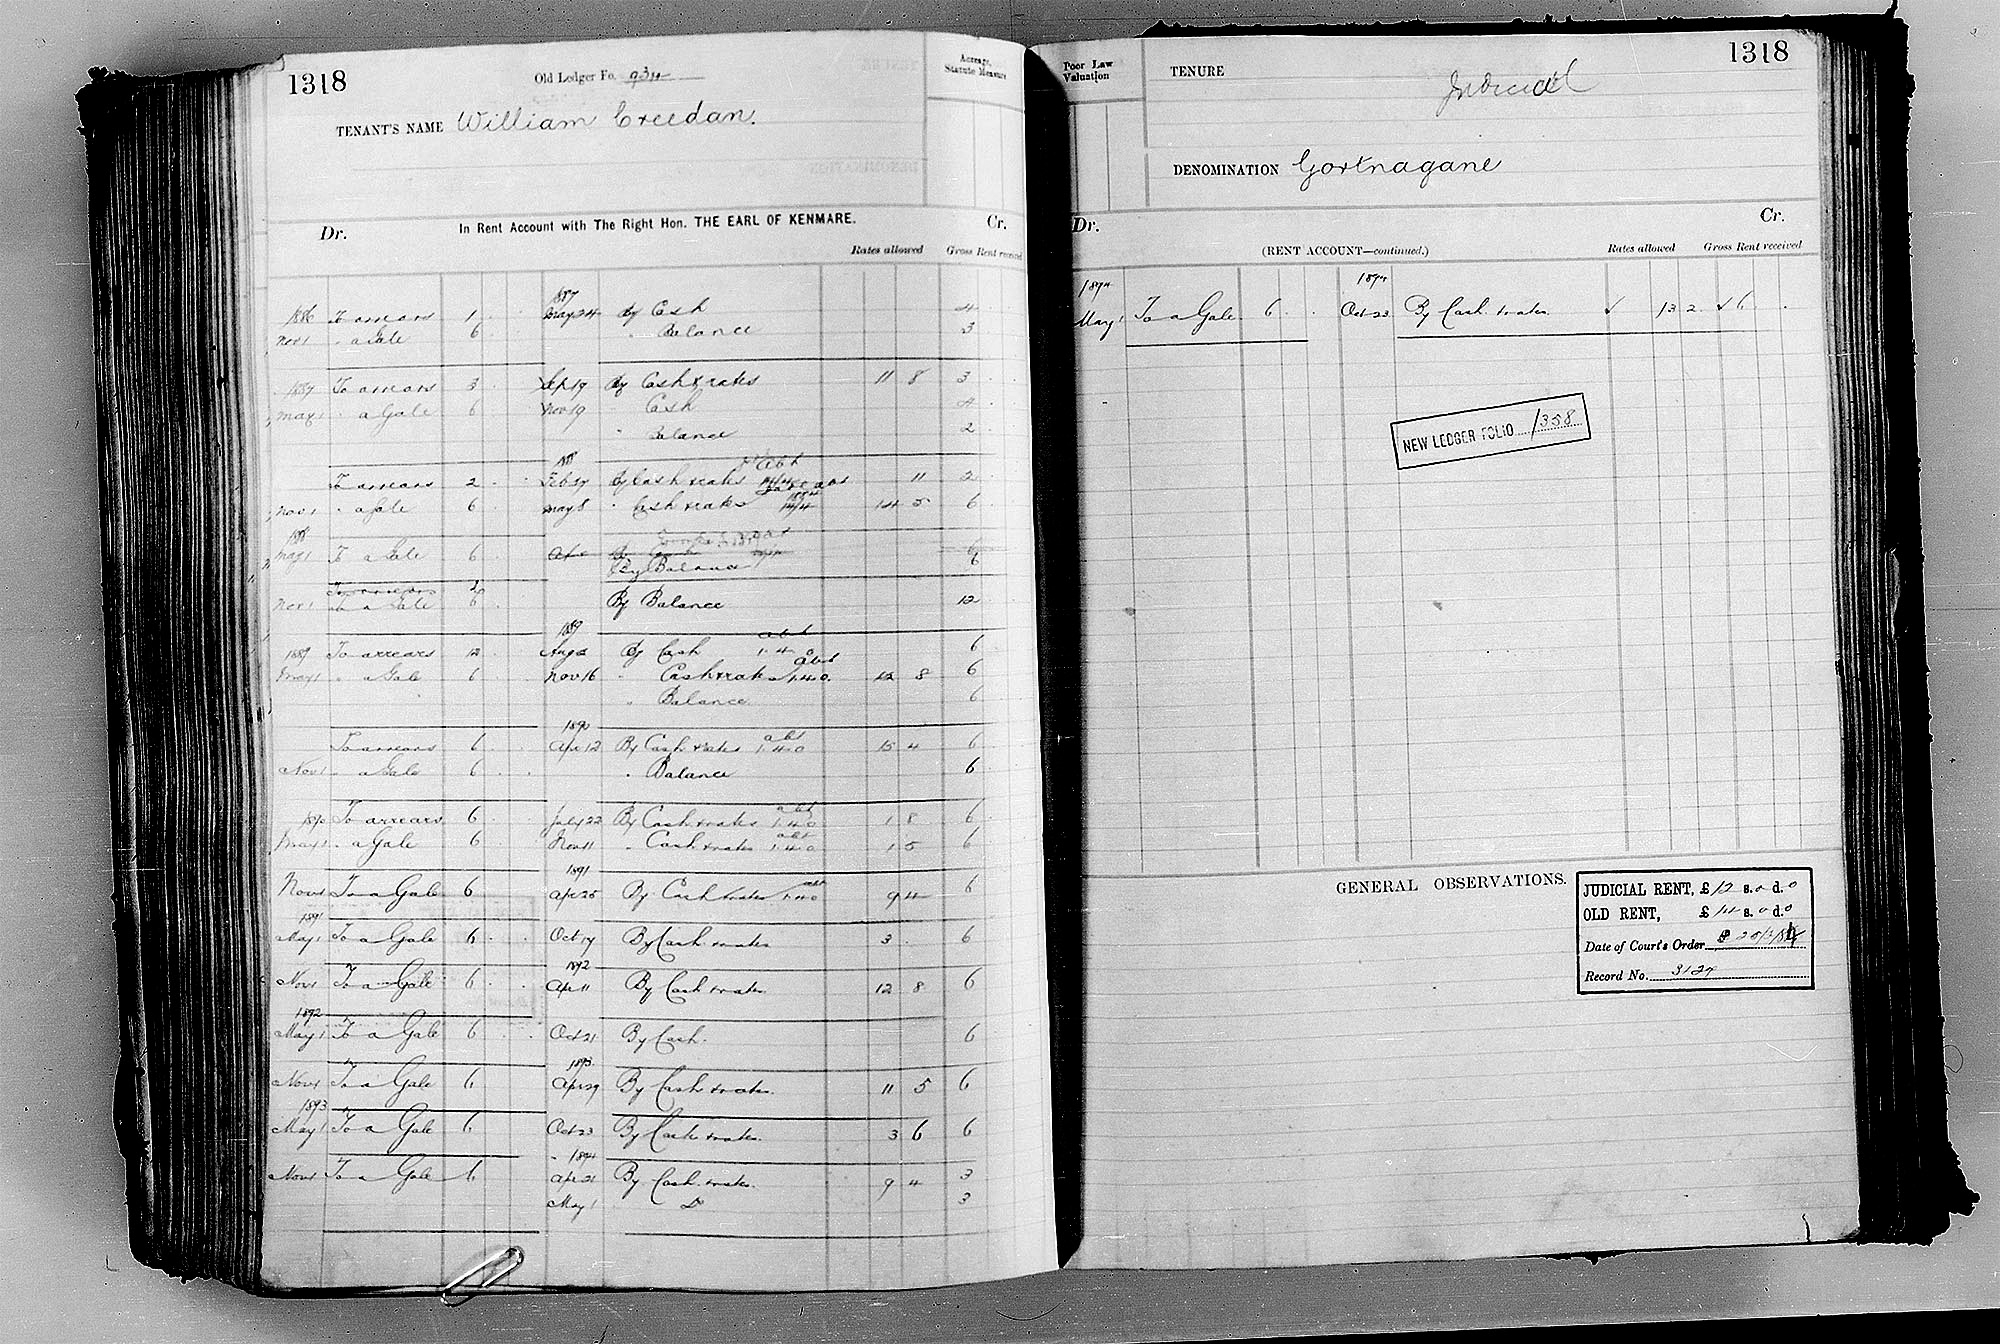 1318
Old Ledger Fo. 934
Acreage, Statute Measure
TENANT'S NAME William Creedan.
In Rent Account with The Right Hon. THE EARL OF KENMARE.
Dr. Cr.
Rates allowed Gross Rent received
1887
1886 To arrears 1 May 24 By Cash 4
Nov 1 " a Gale 6 " Balance 3
1887 To arrears 3 Sep 19 By Cash & rates 11 8 3
May 1 " a Gale 6 Nov 19 " Cash 4
" Balance 2
To arrears 2 By Cash & rates 11 2
Nov 1 " a Gale 6 May 8 " Cash & rates 14 5 6
May 1 To a Gale 6
By Balance 6
To arrears
Nov 1 To a Gale 6 By Balance 12
1889 abt
1889 To arrears 12 Aug By Cash 1.4.0 6
abt
May 1 " a Gale 6 Nov 16 " Cash & rates 1.4.0. 12 8 6
" Balance 6
1890 abt
To arrears 6 Apr 12 By Cash & rates 1.4.0 15 4 6
Nov 1 " a Gale 6 " Balance 6
abt
1890 To arrears 6 July 22 By Cash & rates 1.4.0 1 8 6
abt
May 1 " a Gale 6 Nov 11 " Cash & rates 1.4.0 1 5 6
1891 abt
Nov 1 To a Gale 6 Apr 25 By Cash & rates 1.4.0 9 4 6
1891
May 1 To a Gale 6 Oct 17 By Cash & rates 3 . 6
1892
Nov 1 To a Gale 6 Apr 11 By Cash & rates 12 8 6
1892
May 1 To a Gale 6 Oct 21 By Cash. 6
1893
Nov 1 To a Gale 6 Apr 29 By Cash & rates. 11 5 6
1893
May 1 To a Gale 6 Oct 23 By Cash & rates. 3 6 6
1894
Nov 1 To a Gale 6 Apr 21 By Cash & rates. 9 4 3
May 1 Do 3
1318
Poor Law Valuation
TENURE Judicial
DENOMINATION Gortnagane
Dr. Cr.
(RENT ACCOUNT—continued.) Rates allowed Gross Rent received
1894 1894
May 1 To a Gale 6 Oct 23 By Cash & rates. 13 2 6
NEW LEDGER FOLIO 1358
GENERAL OBSERVATIONS.
JUDICIAL RENT, £12 s.0 d.0
OLD RENT, £14 s.0 d.0
Date of Court's Order
Record No. 3127